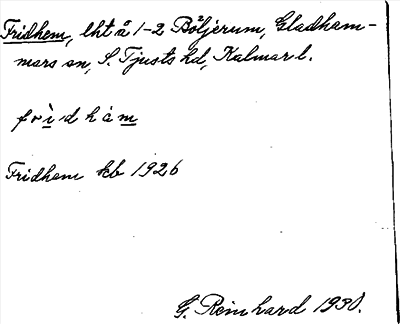 Fridhem, lht å 1-2 Böljerum, Gladham-
mars sn, S. Tjusts hd, Kalmar l.
frìdhám
Fridhem kb 1926
G. Reinhard 1930.